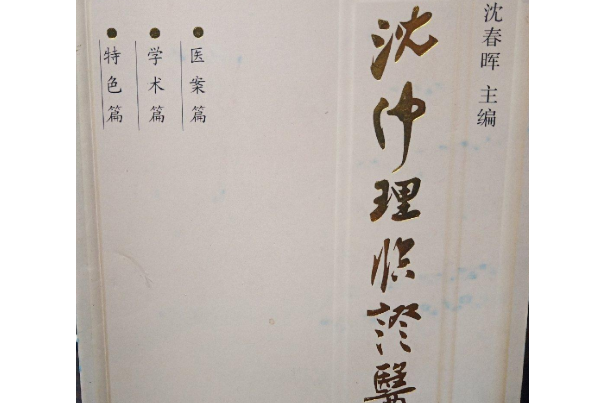 沈春晖 主编
沈仲理临證醫
医案篇
学术篇
特色篇